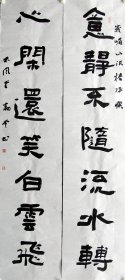 意静不隨流水轉
心閑還笑白雲飛